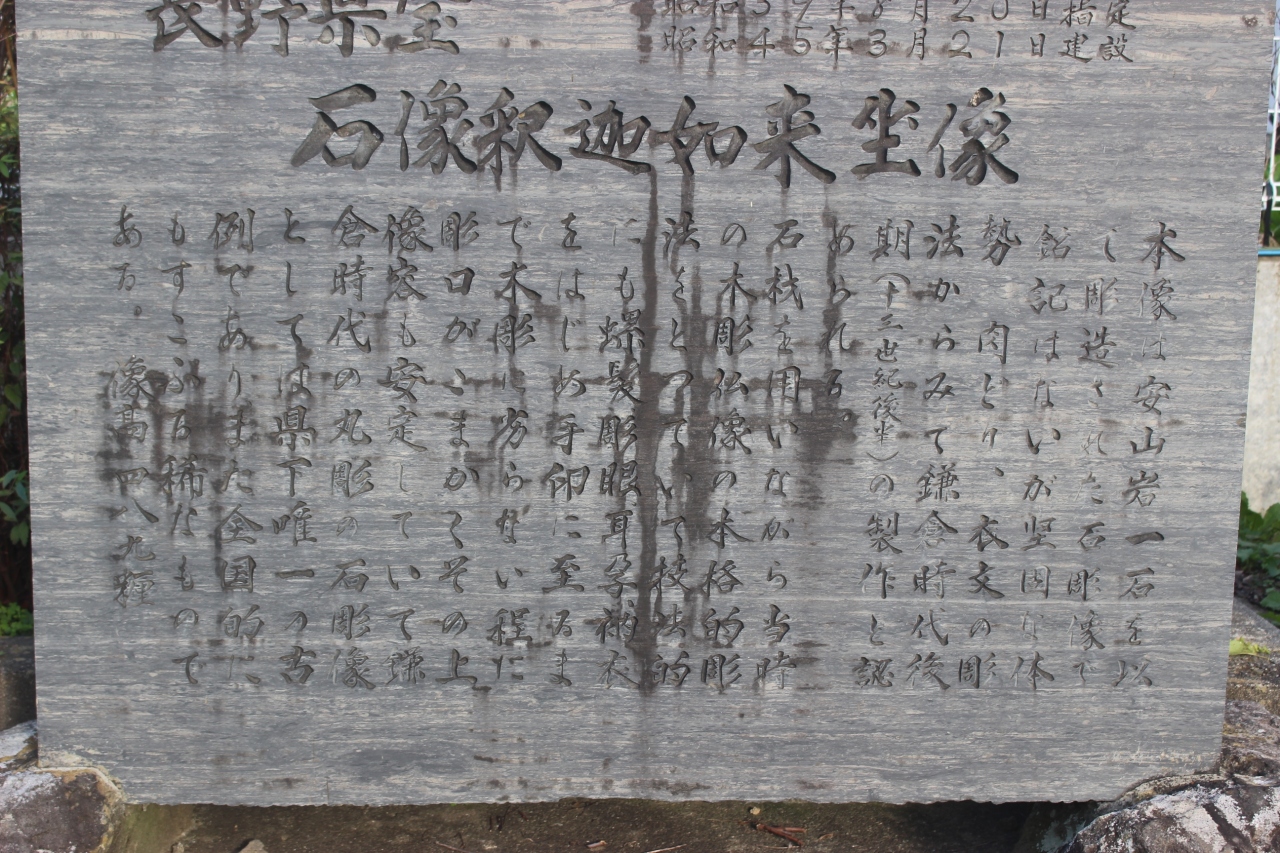 長野県宝
昭和39年8月20日指定
昭和45年3月21日建設
石像釈迦如来坐像
本像は安山岩一石を以
し彫造された石彫像で
銘記はないが坚固な体
勢肉どり、衣文の彫
法からみて鎌倉時代後
期（十三世紀後半）の製作と認
められる。
石材を用いながら当時
の木彫仏像の本格的彫
法をとっていて技法的
にも螺髪彫眼耳朶衲衣
をはじめ手印に至るま
で木彫に劣らない程に
彫口がこまかくその上
像容も安定していて鎌
倉時代の丸彫の石彫像
としては県下唯一の古
例でありまた全国的に
もすこぶる稀なもので
ある。
像高四八九糎